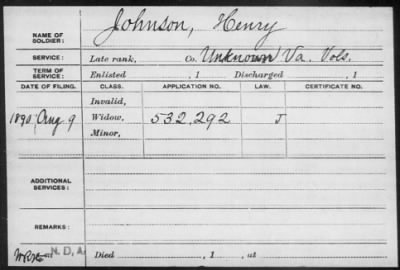 NAME OF SOLDIER: Johnson, Henry
SERVICE: Late rank, Co. Unknown Va. Vols.
TERM OF SERVICE: Enlisted , 1 Discharged , 1
DATE OF FILING. CLASS. APPLICATION NO. LAW. CERTIFICATE NO.
Invalid,
1890, Aug. 9 Widow, 532,292 J
Minor,
ADDITIONAL SERVICES:
REMARKS:
N. D. A. Died , 1 , at